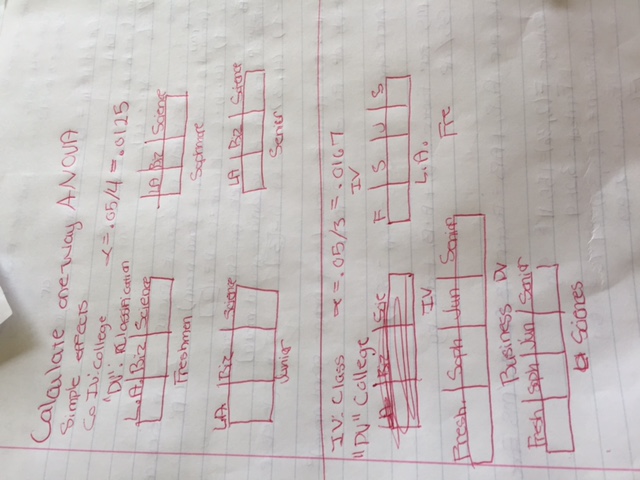 Calculate one way ANOVA
Simple effects
Go IV: College α = .05/4 = .0125
"DV": Classification
L.A. Biz Science
Freshmen
LA Biz Science
Sophmore
LA Biz Science
Junior
LA Biz Science
Senior
IV: Class α = .05/3 = .0167
"DV" College
IV
F S J S
L.A.
Fre
IV
Fresh. Soph Jun Senior
Business DV
Fresh Soph Jun Senior
Science